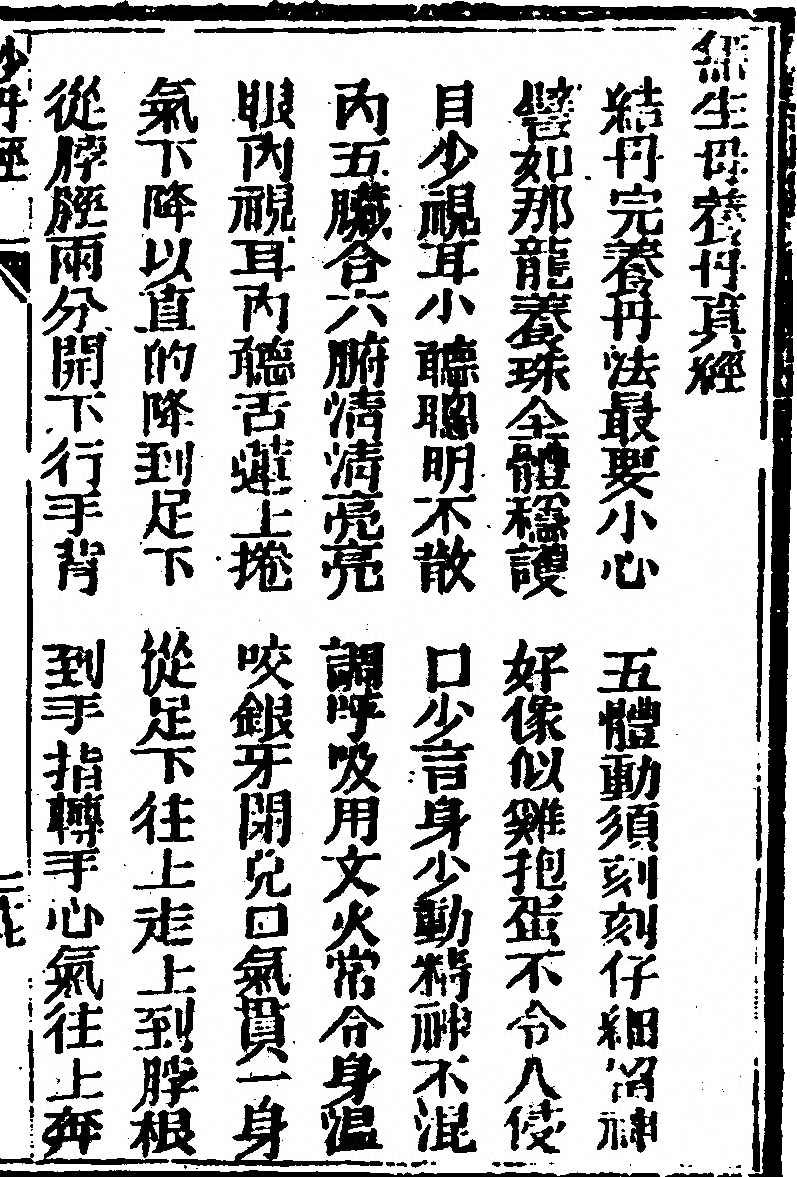 無生母養丹真經
結丹完養丹法最要小心　五體動須刻刻仔細留神
譬如那龍養珠全體穩護　好像似雞抱蛋不令人侵
目少視耳小聽聰明不散　口少言身少動精神不混
內五臟合六腑清清亮亮　調呼吸用文火常令身溫
眼內視耳內聽舌蓮上捲　咬銀牙閉兌口氣貫一身
氣下降以直的降到足下　從足下往上走上到脖根
從脖脛兩分開下行手背　到手指轉手心氣往上奔
妙丹經